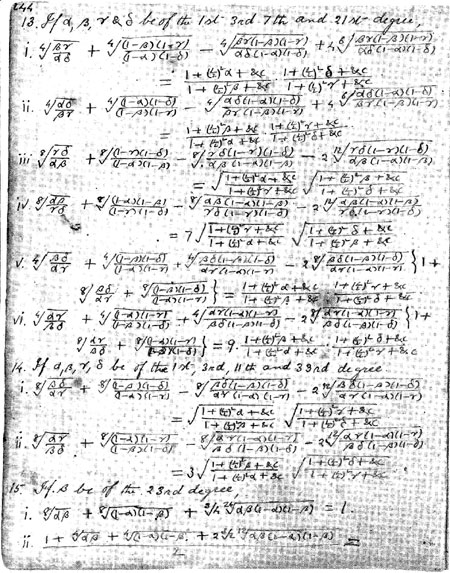 244
13. If α, β, γ & δ be of the 1st 3rd 7th and 21st degree,
i. ∜(βγ/αδ) + ∜((1-β)(1-γ)/(1-α)(1-δ)) - ∜(βγ(1-β)(1-γ)/αδ(1-α)(1-δ)) + 4
= 1+(½)²α+&c / 1+(½)²β+&c · 1+(½)²δ+&c / 1+(½)²γ+&c
ii. ∜(αδ/βγ) + ∜((1-α)(1-δ)/(1-β)(1-γ)) - ∜(αδ(1-α)(1-δ)/βγ(1-β)(1-γ)) + 4
= 1+(½)²β+&c / 1+(½)²α+&c · 1+(½)²γ+&c / 1+(½)²δ+&c
iii. ⁸√(γδ/αβ) + ⁸√((1-γ)(1-δ)/(1-α)(1-β)) - ⁸√(γδ(1-γ)(1-δ)/αβ(1-α)(1-β)) - 2 ¹²√(γδ(1-γ)(1-δ)/αβ(1-α)(1-β))
= √(1+(½)²α+&c / 1+(½)²γ+&c) √(1+(½)²β+&c / 1+(½)²δ+&c)
iv. ⁸√(αβ/γδ) + ⁸√((1-α)(1-β)/(1-γ)(1-δ)) - ⁸√(αβ(1-α)(1-β)/γδ(1-γ)(1-δ)) - 2 ¹²√(αβ(1-α)(1-β)/γδ(1-γ)(1-δ))
= 7 √(1+(½)²γ+&c / 1+(½)²α+&c) √(1+(½)²δ+&c / 1+(½)²β+&c)
v. ∜(βδ/αγ) + ∜((1-β)(1-δ)/(1-α)(1-γ)) + ∜(βδ(1-β)(1-δ)/αγ(1-α)(1-γ)) - 2 ⁸√(βδ(1-β)(1-δ)/αγ(1-α)(1-γ)) {1+
⁸√(βδ/αγ) + ⁸√((1-β)(1-δ)/(1-α)(1-γ))} = 1+(½)²α+&c / 1+(½)²β+&c · 1+(½)²γ+&c / 1+(½)²δ+&c
vi. ∜(αγ/βδ) + ∜((1-α)(1-γ)/(1-β)(1-δ)) + ∜(αγ(1-α)(1-γ)/βδ(1-β)(1-δ)) - 2 ⁸√(αγ(1-α)(1-γ)/βδ(1-β)(1-δ)) {1+
⁸√(αγ/βδ) + ⁸√((1-α)(1-γ)/(1-β)(1-δ))} = 9 · 1+(½)²β+&c / 1+(½)²α+&c · 1+(½)²δ+&c / 1+(½)²γ+&c
14. If α, β, γ, δ be of the 1st, 3rd, 11th and 33rd degree
i. ⁸√(βδ/αγ) + ⁸√((1-β)(1-δ)/(1-α)(1-γ)) - ⁸√(βδ(1-β)(1-δ)/αγ(1-α)(1-γ)) - 2 ¹²√(βδ(1-β)(1-δ)/αγ(1-α)(1-γ))
= √(1+(½)²α+&c / 1+(½)²β+&c) √(1+(½)²γ+&c / 1+(½)²δ+&c)
ii. ⁸√(αγ/βδ) + ⁸√((1-α)(1-γ)/(1-β)(1-δ)) - ⁸√(αγ(1-α)(1-γ)/βδ(1-β)(1-δ)) - 2 ¹²√(αγ(1-α)(1-γ)/βδ(1-β)(1-δ))
= 3 √(1+(½)²β+&c / 1+(½)²α+&c) √(1+(½)²δ+&c / 1+(½)²γ+&c)
15. If β be of the 23rd degree,
i. ⁸√αβ + ⁸√(1-α)(1-β) + ∛4 ²⁴√αβ(1-α)(1-β) = 1.
ii. 1 + ∜αβ + ∜(1-α)(1-β) + 2∛2 ¹²√αβ(1-α)(1-β) / 2 =